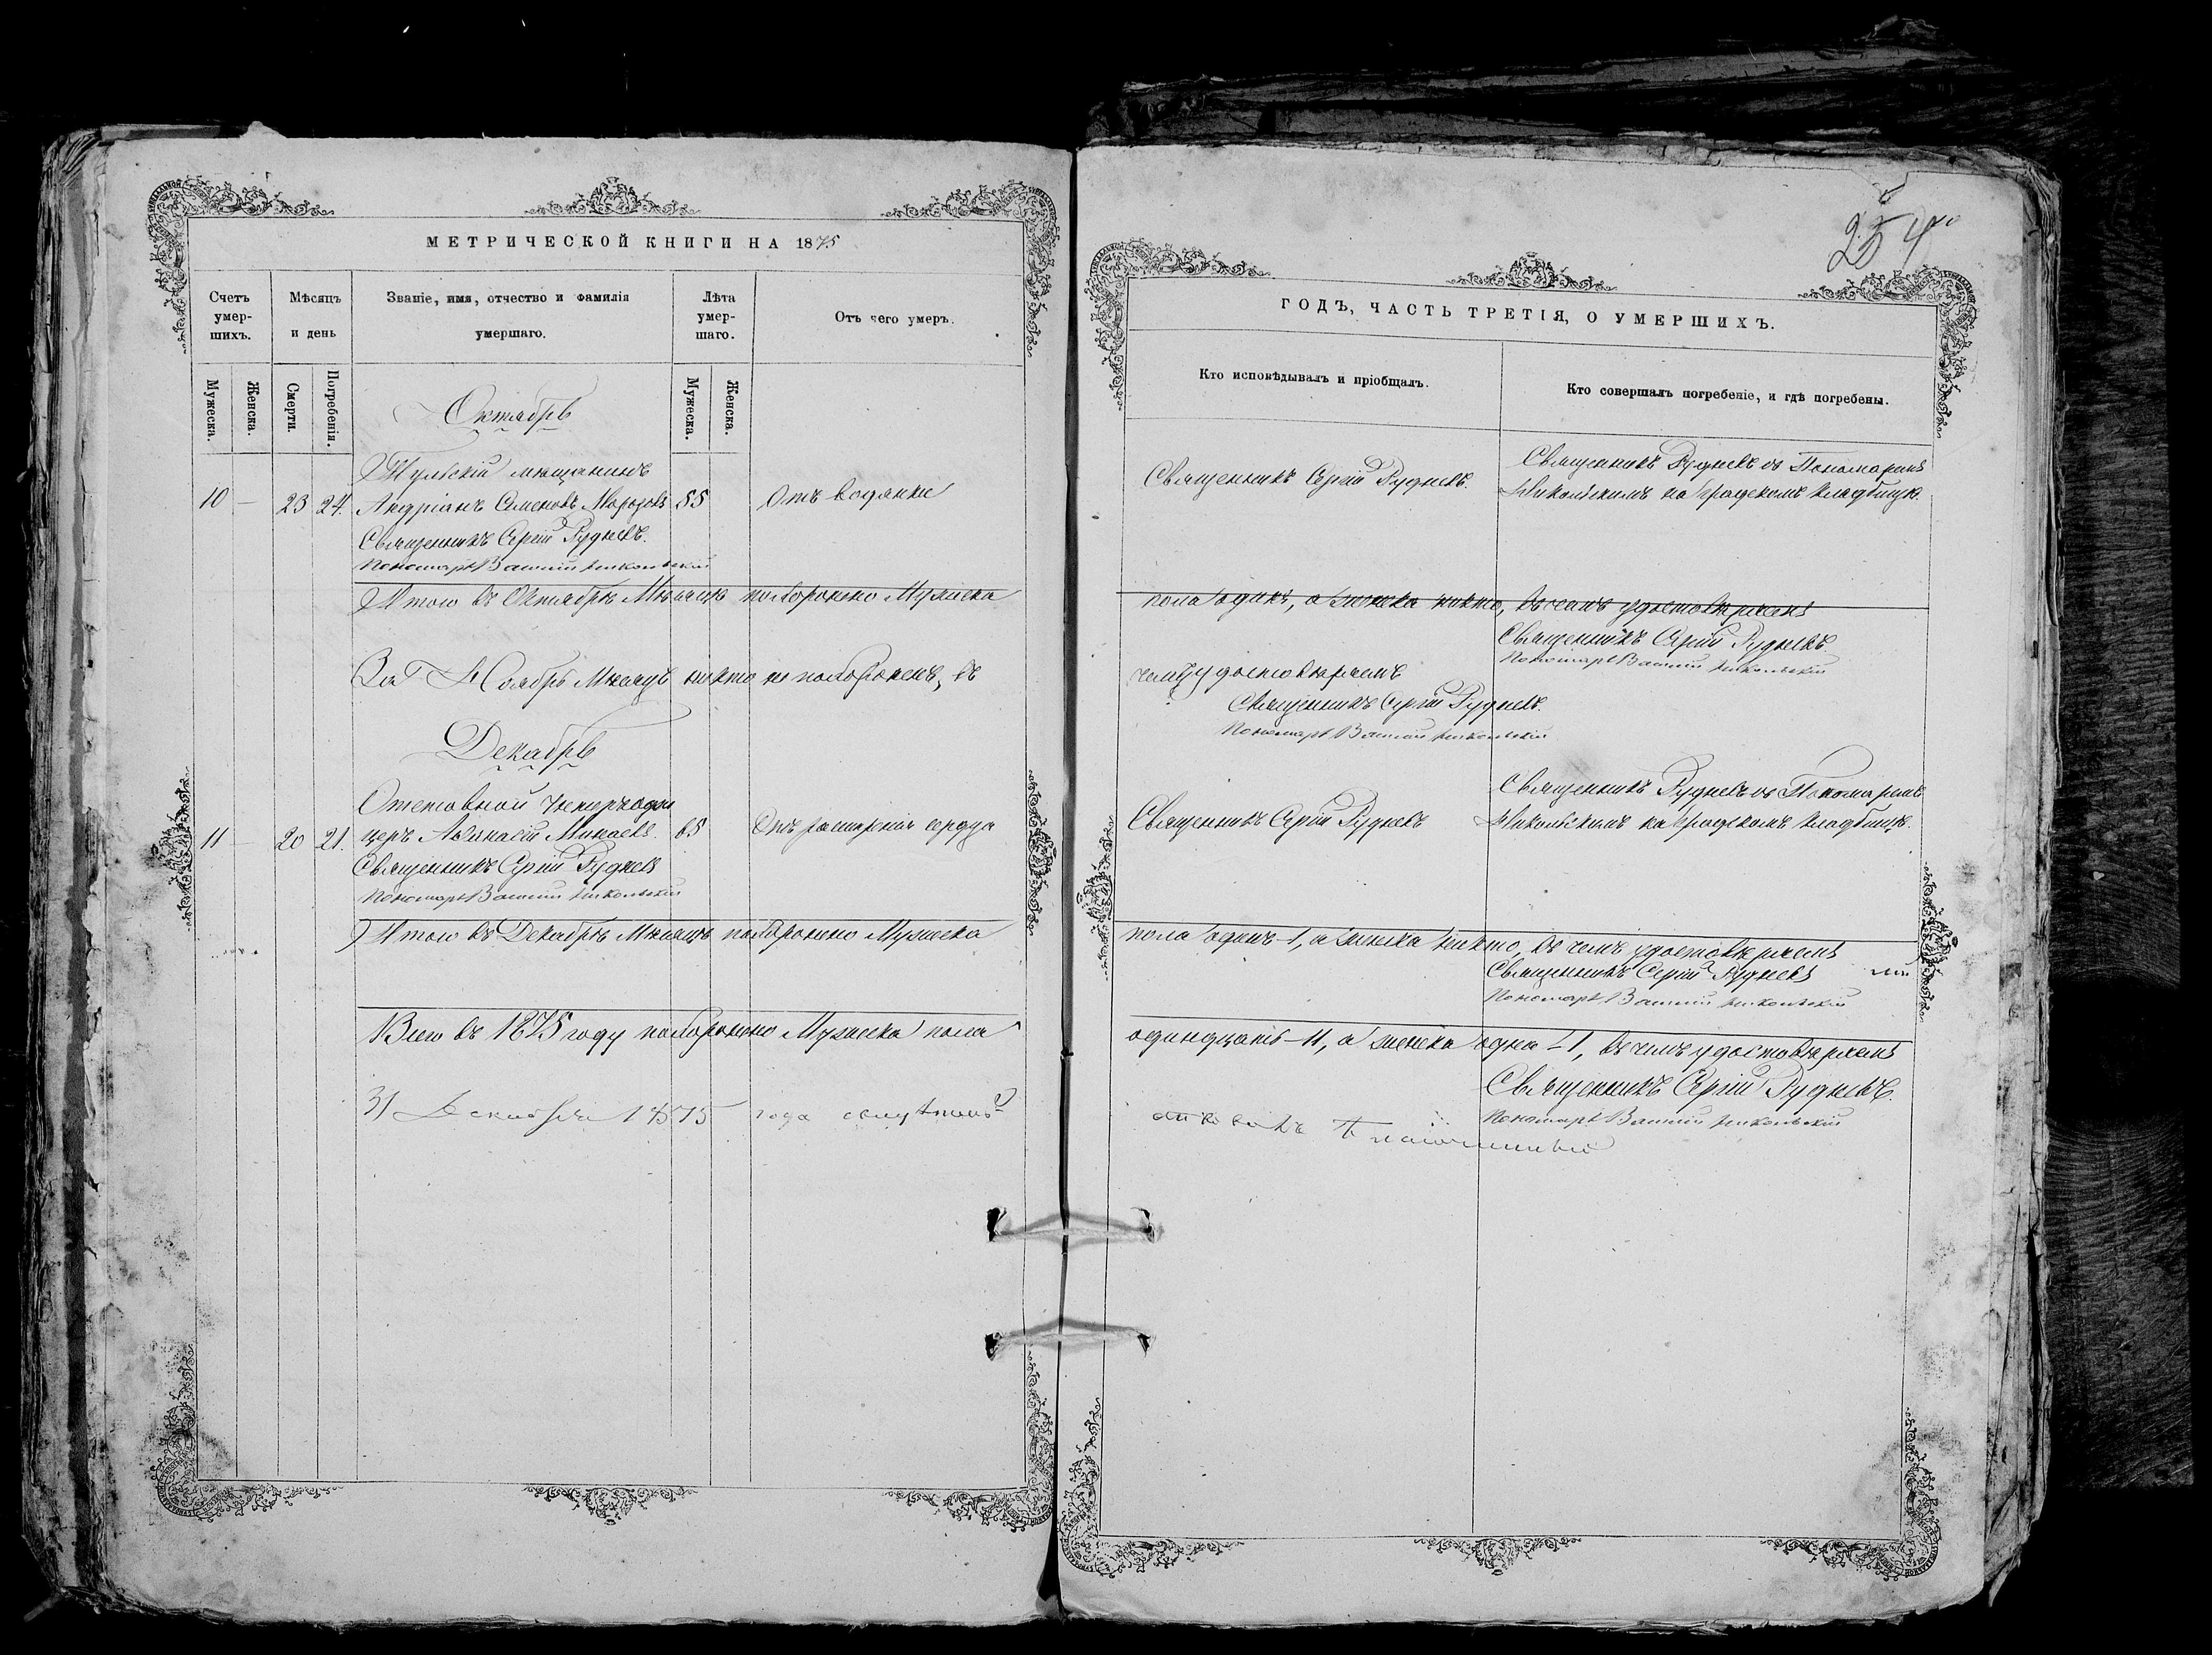 МЕТРИЧЕСКОЙ КНИГИ НА 1875
Счетъ умер-шихъ.
Мѣсяцъ и день
Званіе, имя, отчество и фамилія умершаго.
Лѣта умер-шаго.
Отъ чего умеръ.
Мужеска.
Женска.
Смерти.
Погребенія.
Мужеска.
Женска.
Октябрь
Тульскій мѣщанинъ
10 — 23 24. Андріанъ Семеновъ Морозовъ 55 Отъ водянки
Священникъ Сергій Рудневъ.
Пономарь Василій Никольскій
Итого въ Октябрѣ Мѣсяцѣ погребено Мужеска
За Ноябрь Мѣсяцъ никто не погребенъ, въ
Декабрь
Отставной Унтеръ офи
11 — 20 21. церъ Аѳанасій Минаевъ. 65 Отъ расширенія сердца
Священникъ Сергій Рудневъ
Пономарь Василій Никольскій
Итого въ Декабрѣ Мѣсяцѣ погребено Мужеска
Всего въ 1875 году погребено Мужеска пола
31 Декабря 1875 года
254
ГОДЪ, ЧАСТЬ ТРЕТІЯ, О УМЕРШИХЪ.
Кто исповѣдывалъ и пріобщалъ.
Кто совершалъ погребеніе, и гдѣ погребены.
Священникъ Сергій Рудневъ.
Священникъ Рудневъ съ Пономаремъ
Никольскимъ на градскомъ кладбищѣ.
пола одинъ, а женска никто, въ чемъ удостовѣряемъ
Священникъ Сергій Рудневъ
Пономарь Василій Никольскій
чемъ удостовѣряемъ
Священникъ Сергій Рудневъ.
Пономарь Василій Никольскій
Священникъ Сергій Рудневъ
Священникъ Рудневъ съ Пономаремъ
Никольскимъ на градскомъ кладбищѣ.
пола одинъ-1, а женска никто, въ чемъ удостовѣряемъ
Священникъ Сергій Рудневъ
Пономарь Василій Никольскій
одинадцать-11, а женска одна-1, въ чемъ удостовѣряемъ
Священникъ Сергій Рудневъ.
Пономарь Василій Никольскій